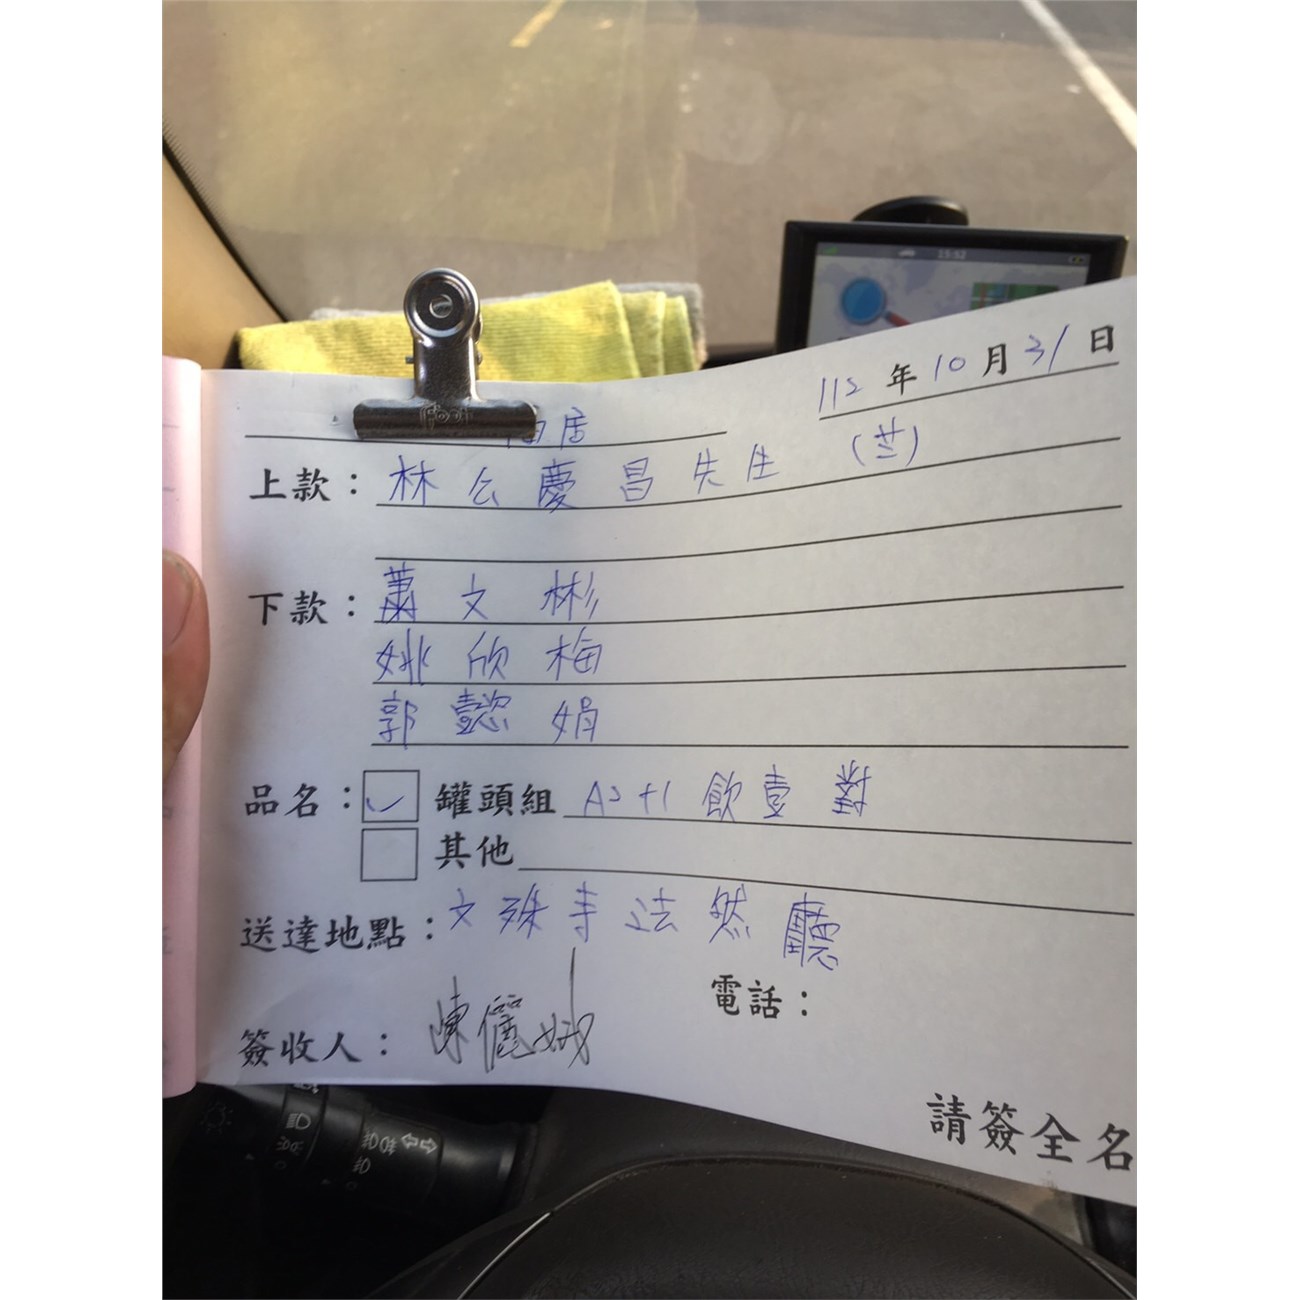 15:52
112 年 10 月 31 日
居
(芸)
上款：林公慶昌先生
下款：蕭文彬
姚欣梅
郭懿娟
品名：罐頭組 A2+1 飲壹對
其他
送達地點：文殊寺法然廳
電話：
簽收人：陳儷娥
請簽全名